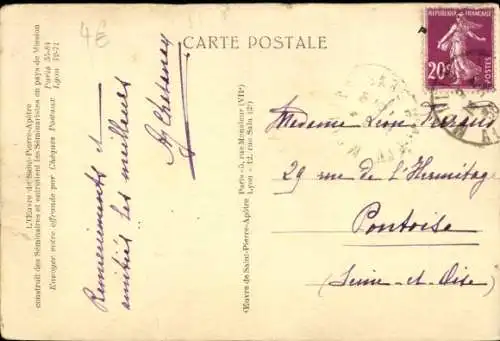 4€
CARTE POSTALE
RÉPUBLIQUE FRANÇAISE
20c
POSTES
L'Œuvre de Saint-Pierre-Apôtre
construit des Séminaires et entretient les Séminaristes en pays de Mission
Envoyer votre offrande par Chèques Postaux
Paris
Lyon
Remerciements et
amitiés les meilleurs
Œuvre de Saint-Pierre-Apôtre
Paris rue Monsieur (VIIe)
Lyon - 12, rue Sala (2e)
Madame Léon
29 rue de l'Hermitage
Pontoise
(Seine-et-Oise)